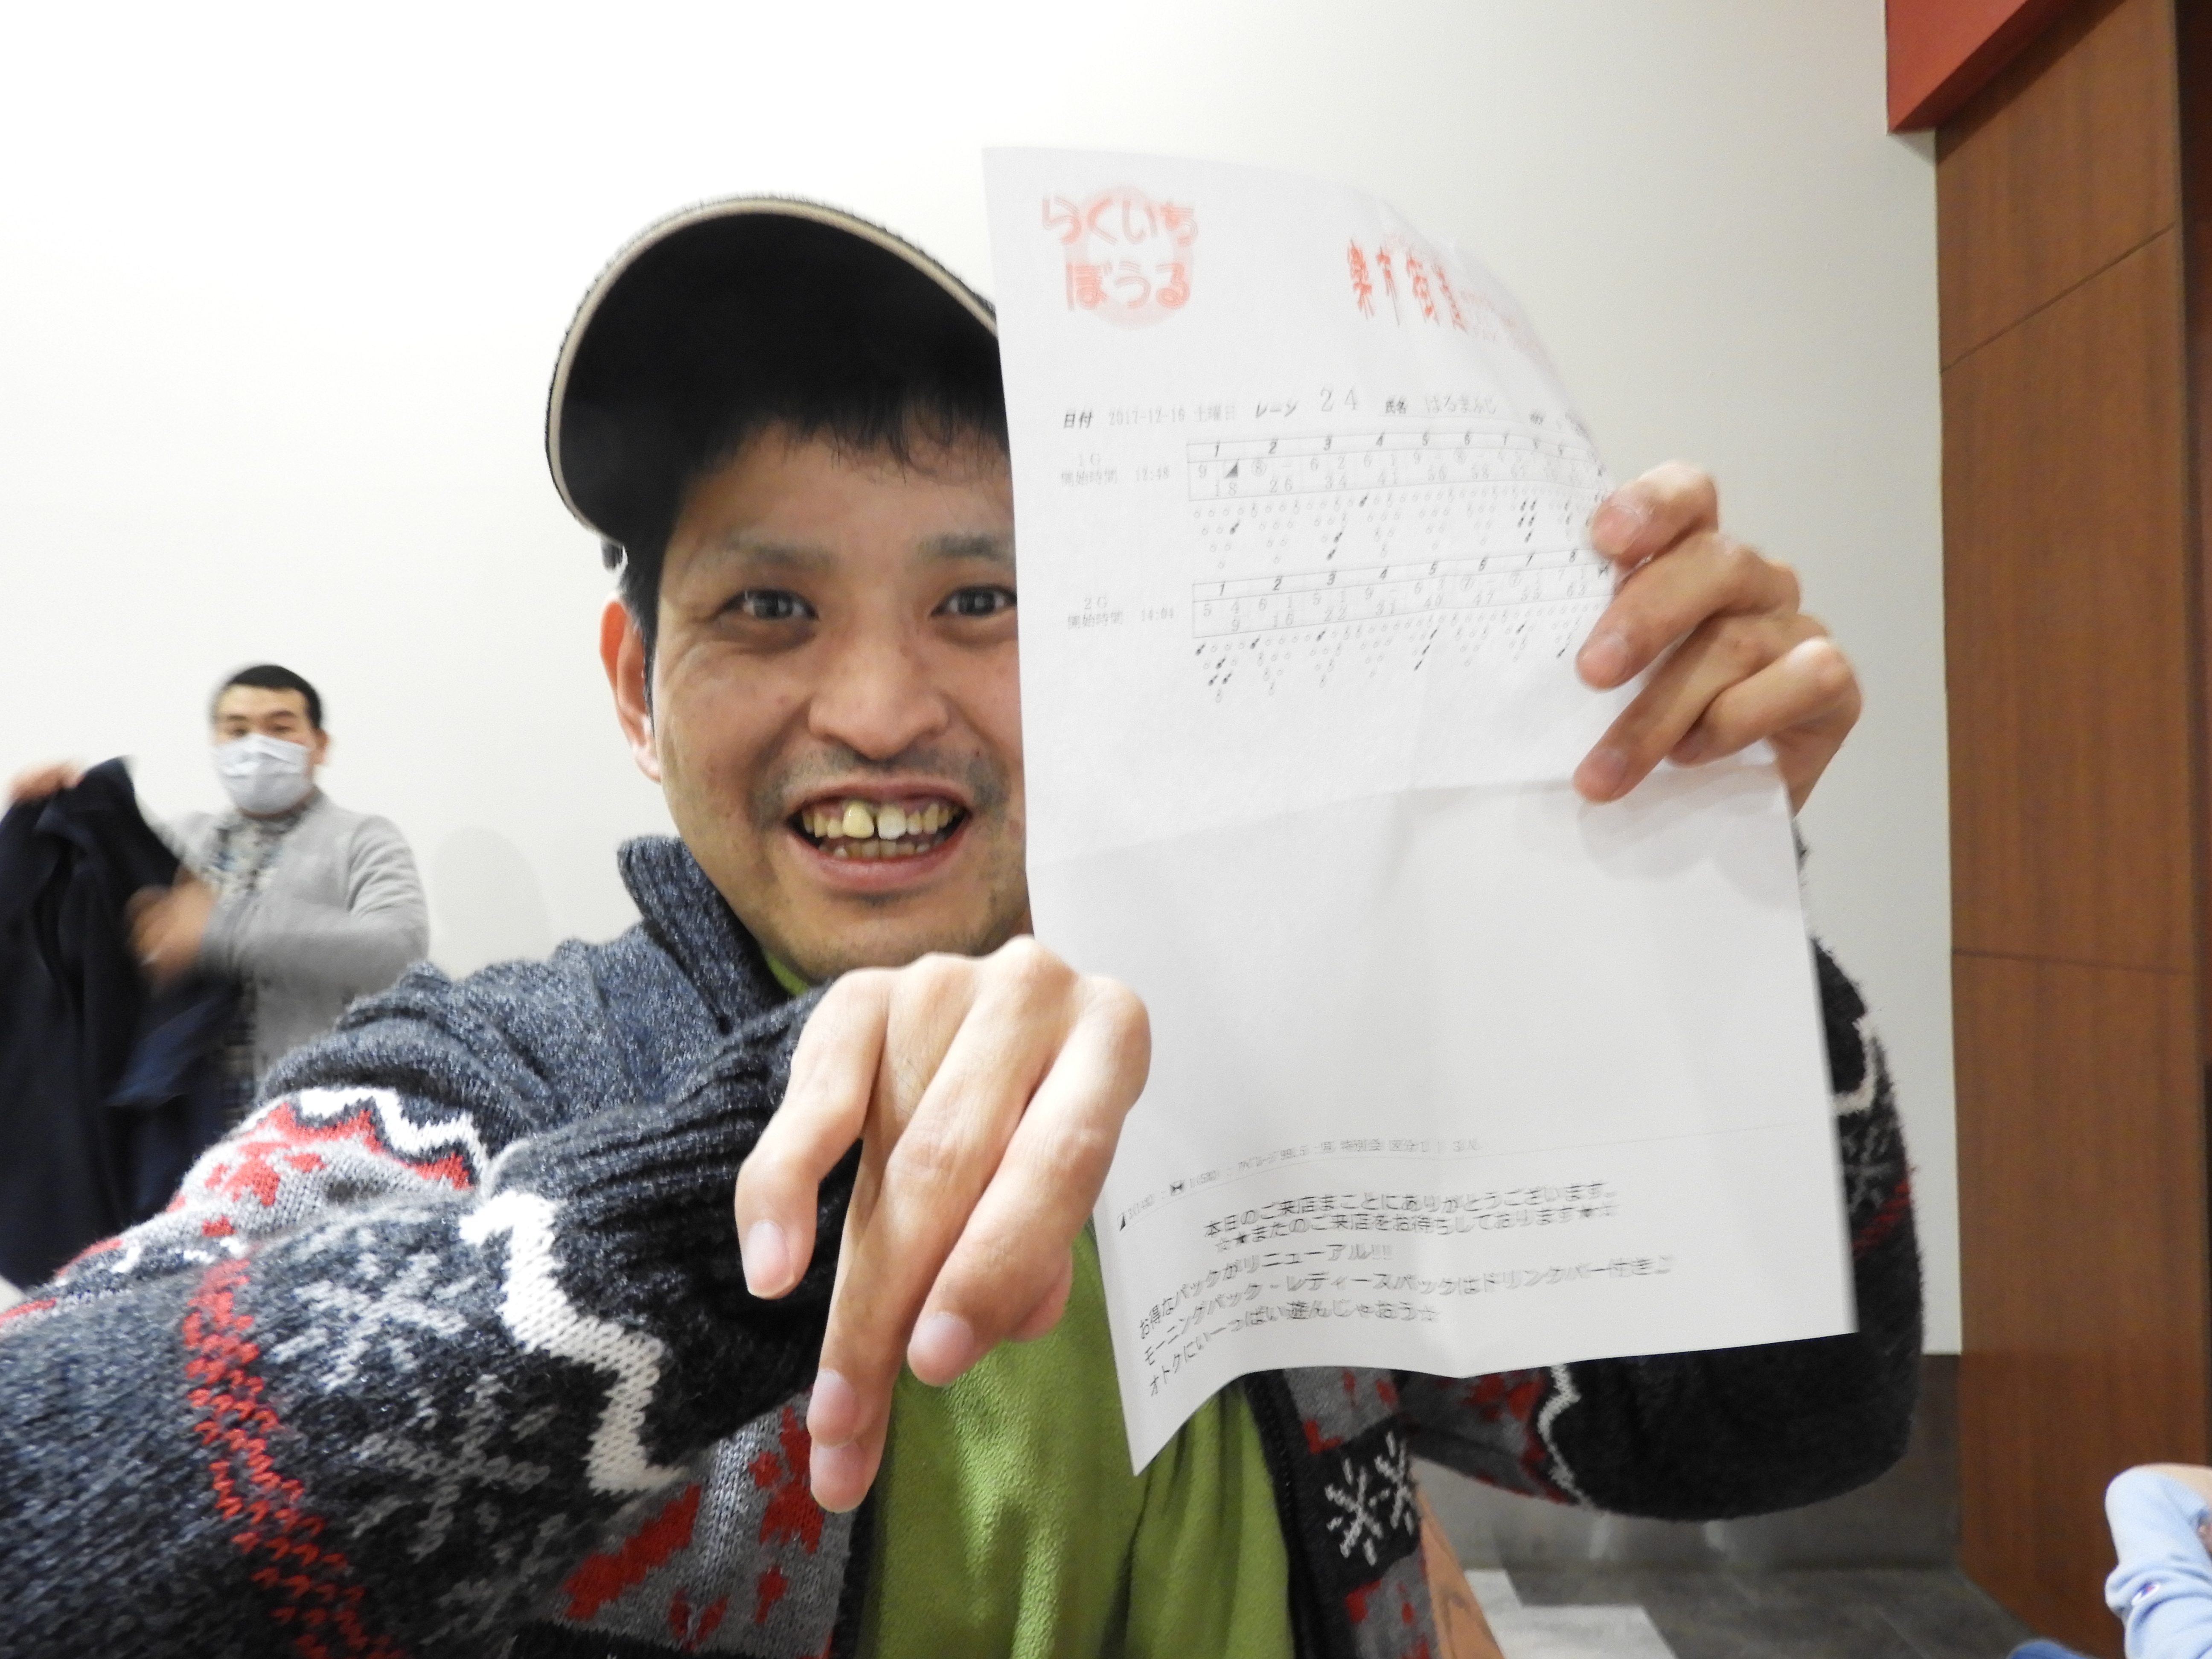 らくいち
ぼうる
楽市街道
日付 2017-12-16 土曜日 レーン 24 氏名 はるまふじ
1G
開始時間 12:48
1 2 3 4 5 6 7 8 9
9 ◢ ⑧ - 6 2 6 1 9 - ⑧ -
18 26 34 41 50 58
2G
開始時間 14:04
1 2 3 4 5 6 7 8
5 4 6 1 5 1 9 - 6
9 16 22 31 40 47 55 63
本日のご来店まことにありがとうございます。
☆★またのご来店をお待ちしております★☆
お得なパックがリニューアル!!!
モーニングパック・レディースパックはドリンクバー付き♪
オトクにいーっぱい遊んじゃおう☆